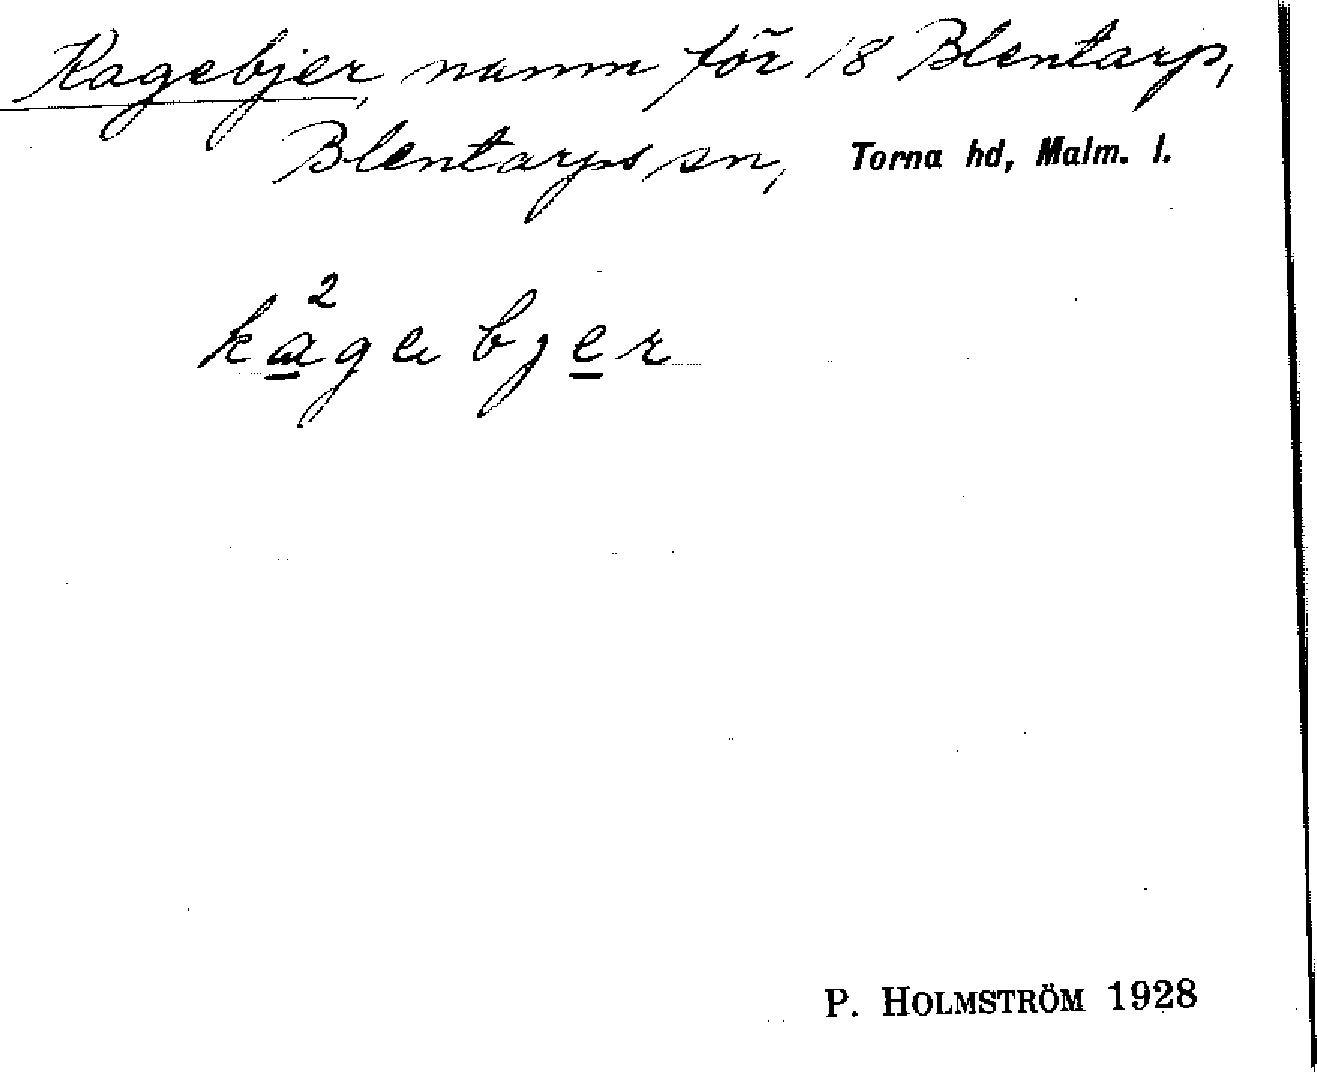 Kagebjer, namn för 18 Blentarp,
Blentarps sn, Torna hd, Malm. l.
2
kagebjer
P. HOLMSTRÖM 1928